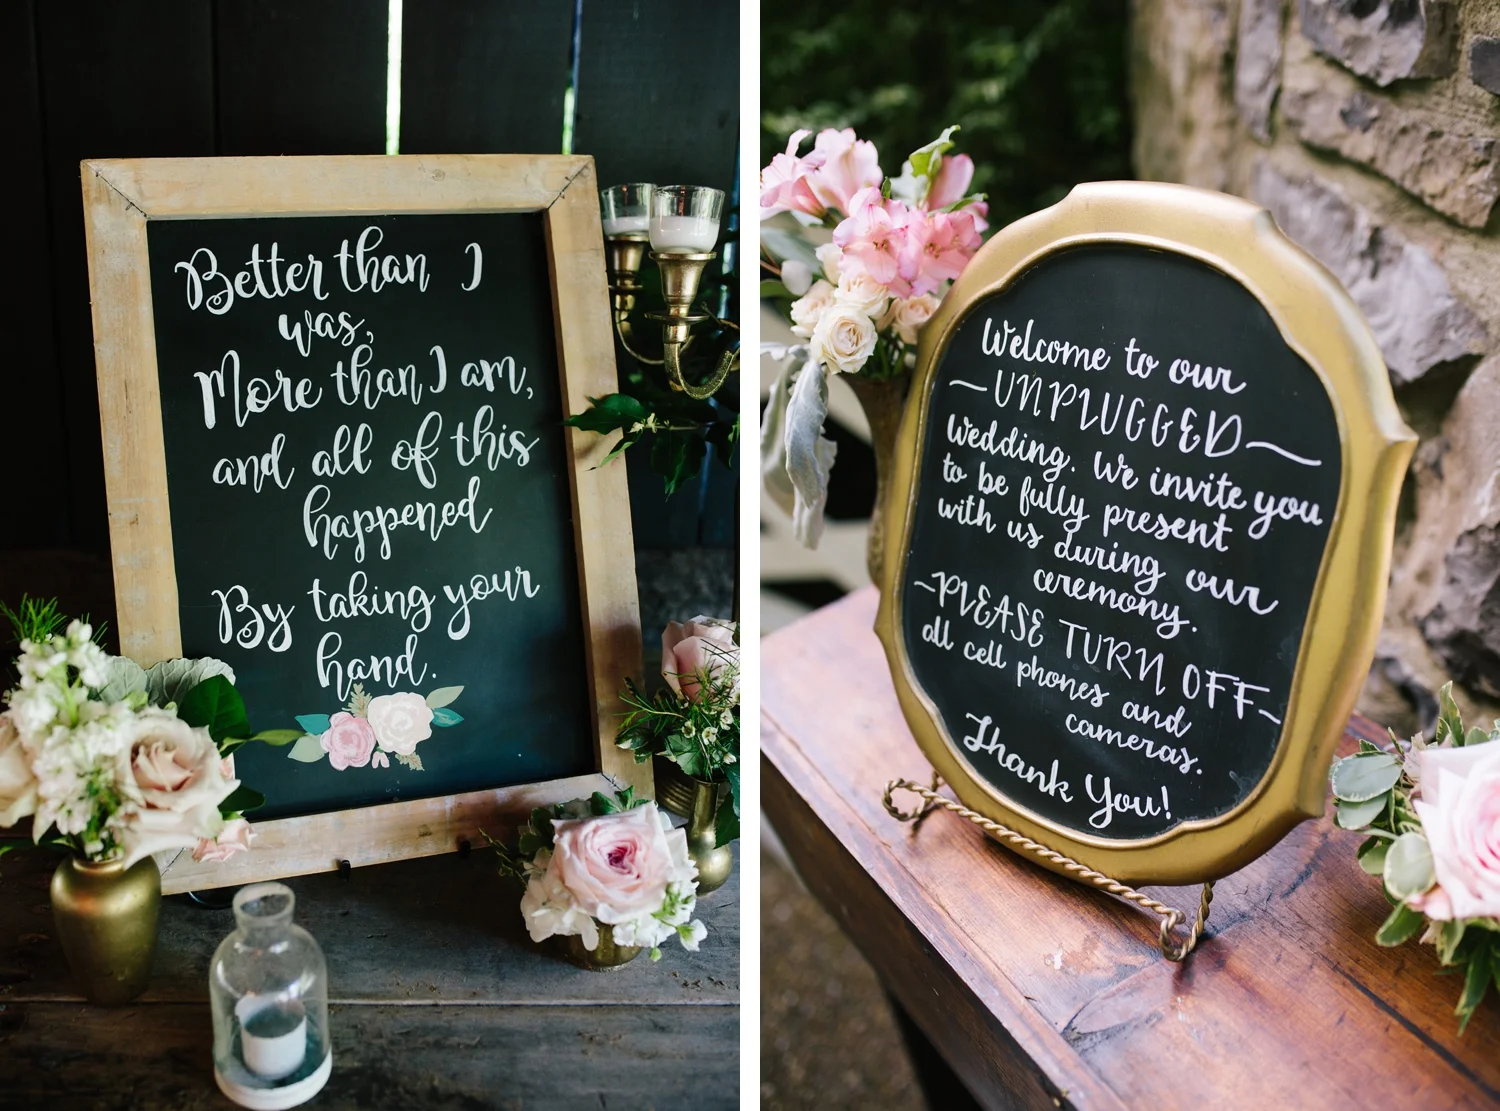 Better than I
was,
More than I am,
and all of this
happened
By taking your
hand.
Welcome to our
~UNPLUGGED~
Wedding. We invite you
to be fully present
with us during our
ceremony.
~PLEASE TURN OFF~
all cell phones and
cameras.
Thank You!